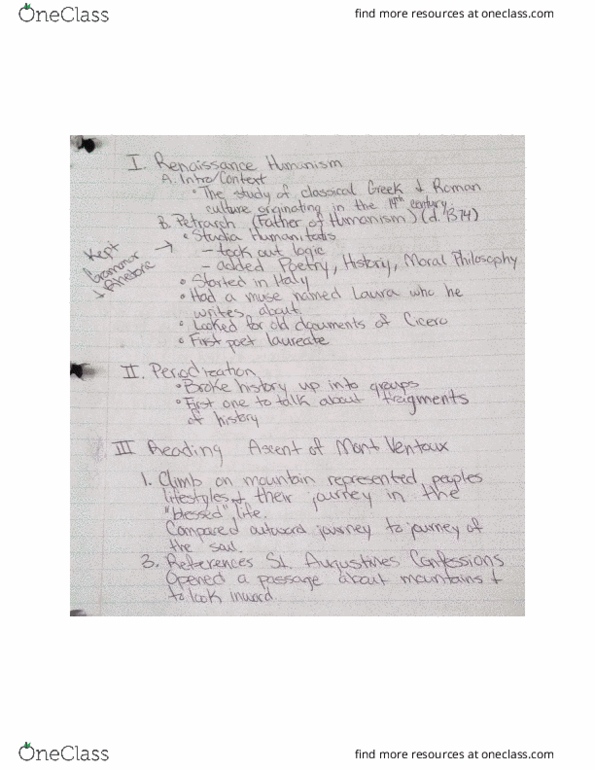 OneClass
find more resources at oneclass.com
I. Renaissance Humanism
A. Intro/Context
• The study of classical Greek & Roman
culture orginating in the 14th century.
B. Petrarch (Father of Humanism) (d. 1374)
• Studia Humanitatis
Kept Grammar & Rhetoric →
– took out logic
– added Poetry, History, Moral Philosophy
• Started in Italy
• Had a muse named Laura who he
writes about
• Looked for old documents of Cicero
• First poet laureate
II. Periodization
• Broke history up into groups
• First one to talk about freigments
of history
III Reading Ascent of Mont Ventoux
1. Climb on mountain represented peoples
lifestyles & their journey in the
"blessed" life.
Compared outward journey to journey of
the soul.
3. References St. Augustines Confessions
Opened a passage about mountains &
to look inward.
OneClass
find more resources at oneclass.com